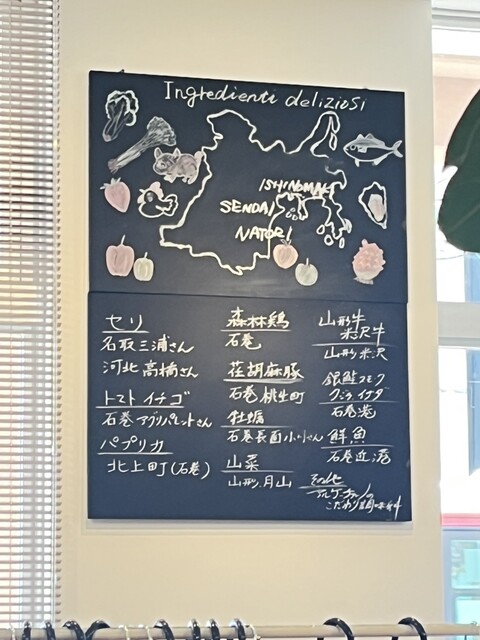 Ingredienti deliziosi
ISHINOMAKI
SENDAI
NATORI
セリ
名取三浦さん
河北高橋さん
トマト イチゴ
石巻アグリパレットさん
パプリカ
北上町(石巻)
森林鶏
石巻
荏胡麻豚
石巻桃生町
牡蠣
石巻長面小川さん
山菜
山形.月山
山形牛
米沢牛
山形米沢
銀鮭
石巻港
鮮魚
石巻近港
その他
こだわり調味料